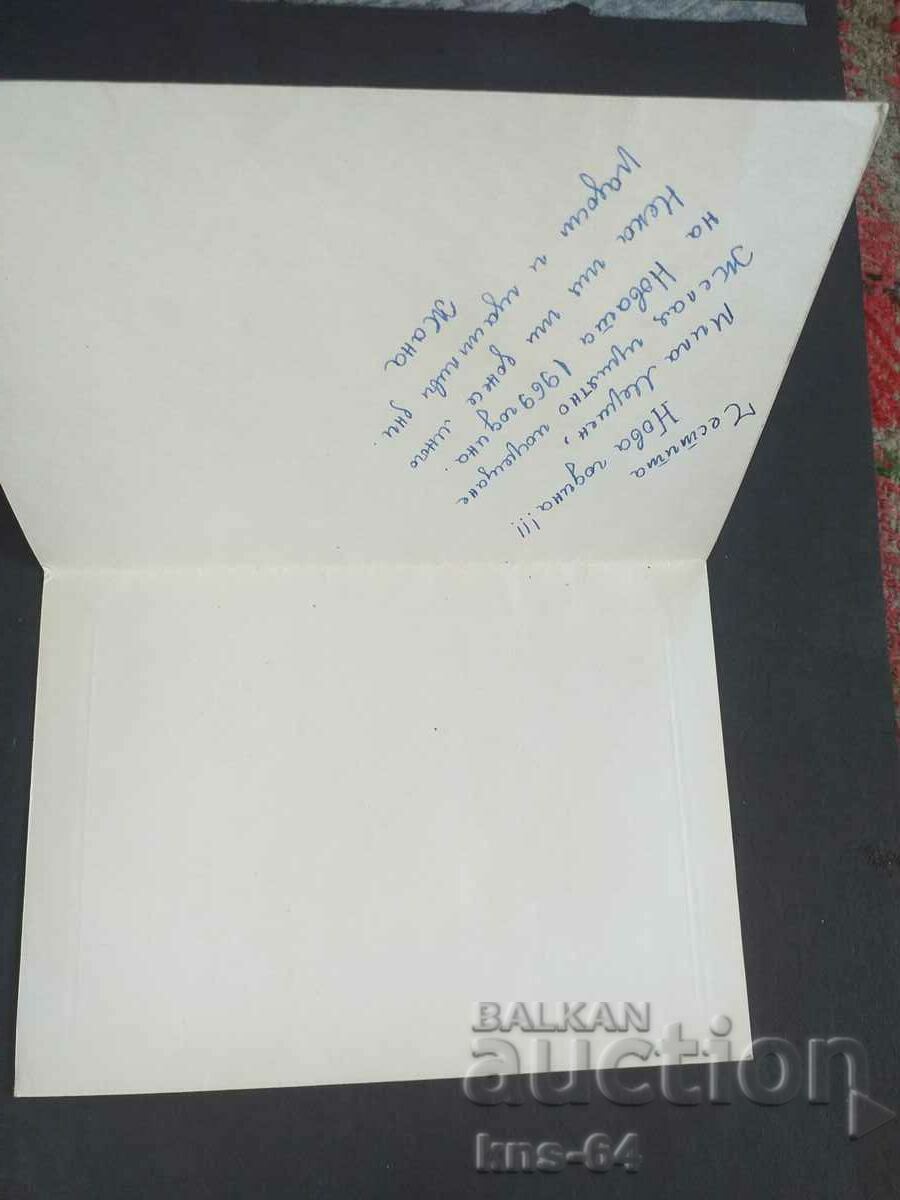 Честита
Нова година!!!
Мила
Желая приятно посрещане
на Новата 1969 година.
Нека тя ти донесе много
радост и щастливи дни.
Жана
BALKAN
auction
kns-64